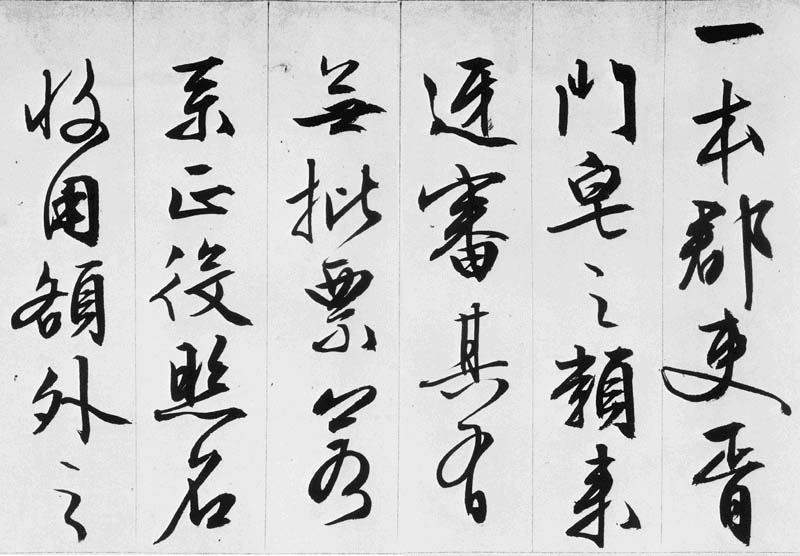 一本郡吏胥
門皂之類来
逐審其有
無批票若
系正役照名
收用額外之